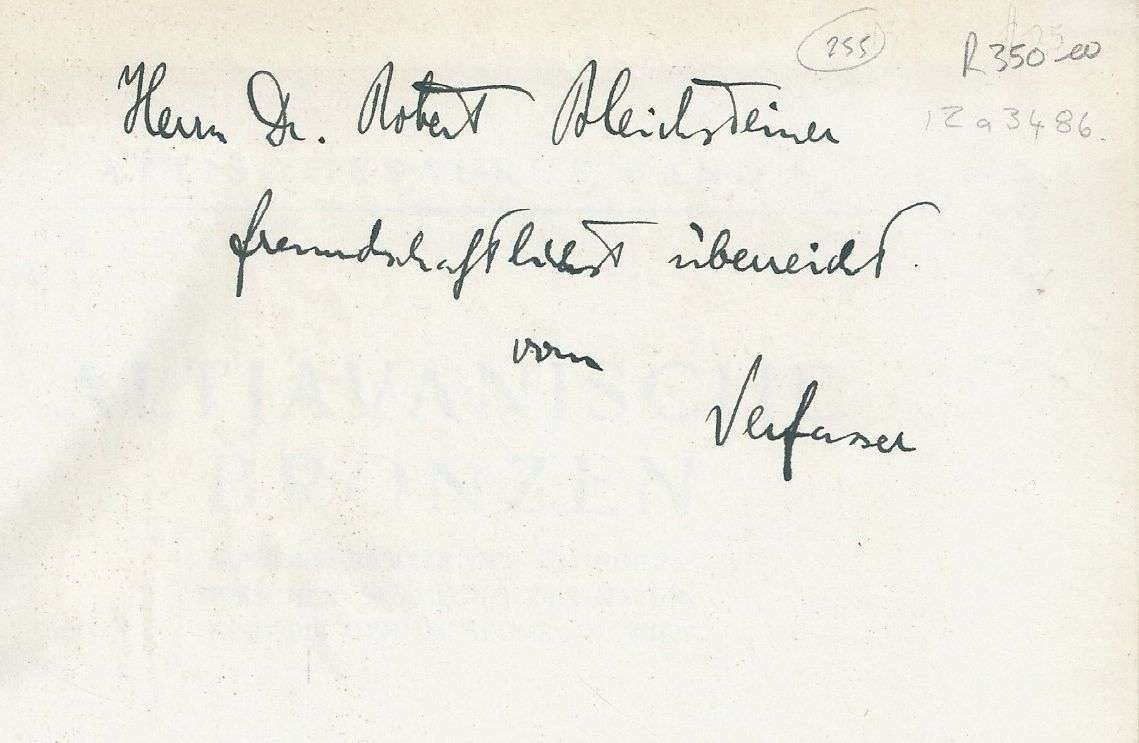 255
R350-00
12a3486.
Herrn Dr. Robert Bleichsteiner
freundschaftlichst überreicht.
vom
Verfasser